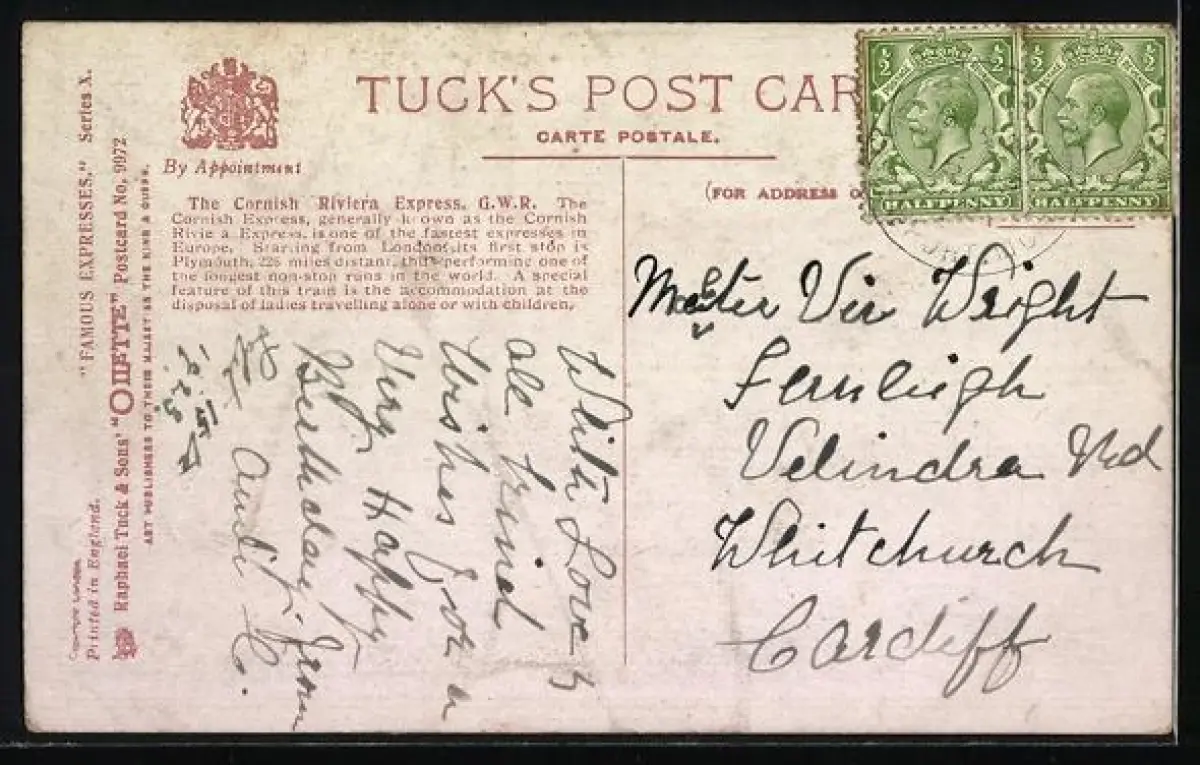 TUCK'S POST CAR
CARTE POSTALE.
(FOR ADDRESS O
By Appointment
The Cornish Riviera Express. G.W.R. The
Cornish Express, generally known as the Cornish
Riviera Express, is one of the fastest expresses in
Europe. Starting from London its first stop is
Plymouth, 226 miles distant, thus performing one of
the longest non-stop runs in the world. A special
feature of this train is the accommodation at the
disposal of ladies travelling alone or with children.
"FAMOUS EXPRESSES." Series X.
Raphael Tuck & Sons' "OILETTE" Postcard No. 9972
ART PUBLISHERS TO THEIR MAJESTIES THE KING & QUEEN.
Printed in England.
½ ½
HALFPENNY
½ ½
HALFPENNY
Master Vir Wright
Fernleigh
Velindra Rd
Whitchurch
Cardiff
With Love &
all kind
Wishes for a
Very Happy
Birthday. from
Aunti C.